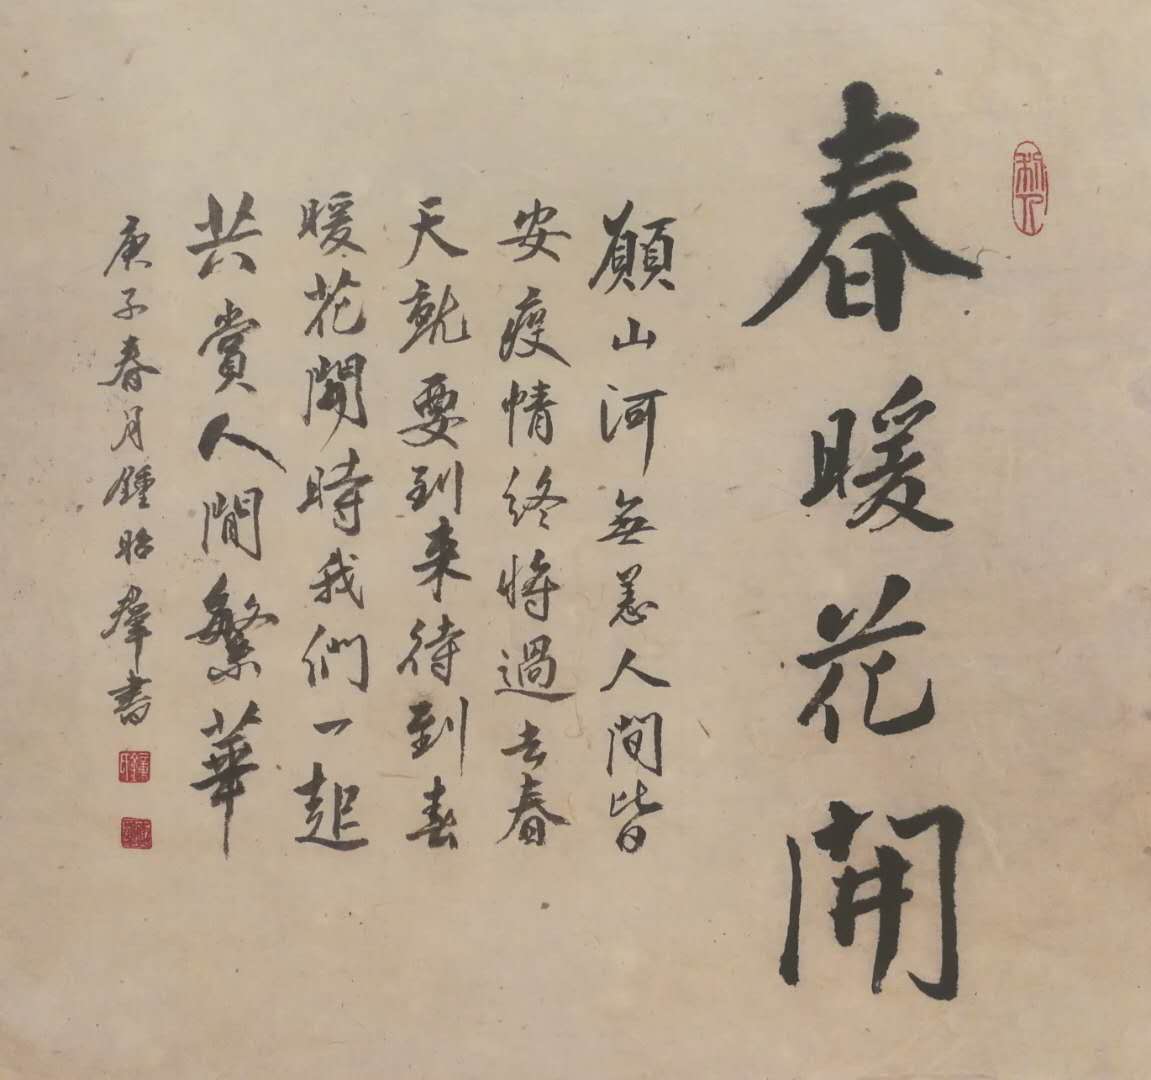 春暖花開
願山河無恙人間皆
安疫情終將過去春
天就要到來待到春
暖花開時我們一起
共賞人間繁華
庚子春月鍾昭群書